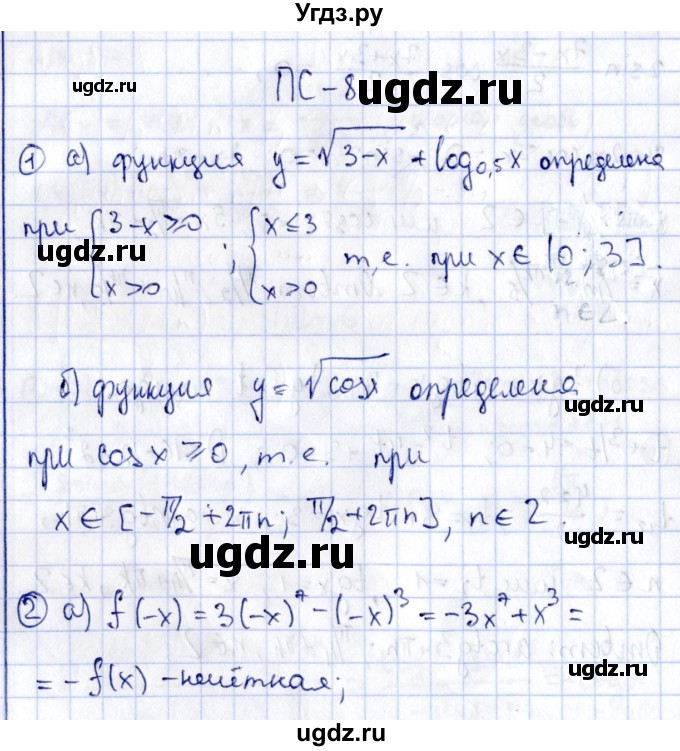 Угдз.ру
ПС-8
ugdz.ru
① а) функция y = √(3-x) + log₀,₅x определена
при { 3-x ≥ 0 ; { x ≤ 3 т.е. при x ∈ (0; 3].
{ x > 0 { x > 0
ugdz.ru
n ∈ Z.
б) функция y = √cosx определена
ugdz.ru
при cos x ≥ 0, т.е. при
x ∈ [-π/2 + 2πn; π/2 + 2πn], n ∈ Z.
ugdz.ru
② а) f(-x) = 3(-x)⁷ - (-x)³ = -3x⁷ + x³ =
= -f(x) - нечётная;
ugdz.ru
Угдз.ру